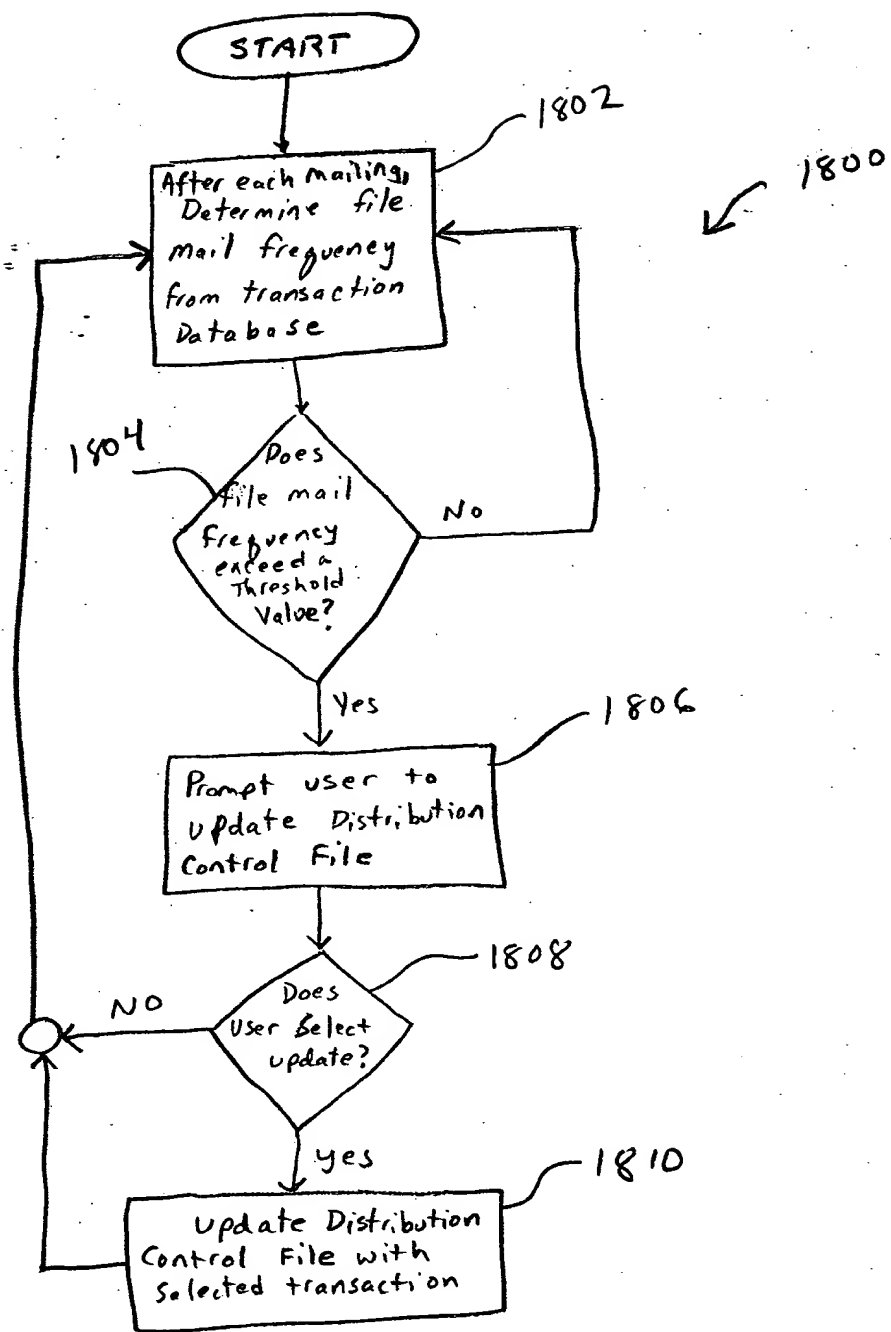 START
1802
1800
After each mailing,
Determine file
mail frequency
from transaction
Database
1804
Does
file mail
frequency
exceed a
Threshold
Value?
NO
Yes
1806
Prompt user to
update Distribution
Control File
1808
Does
User Select
update?
NO
yes
1810
update Distribution
Control File with
Selected transaction